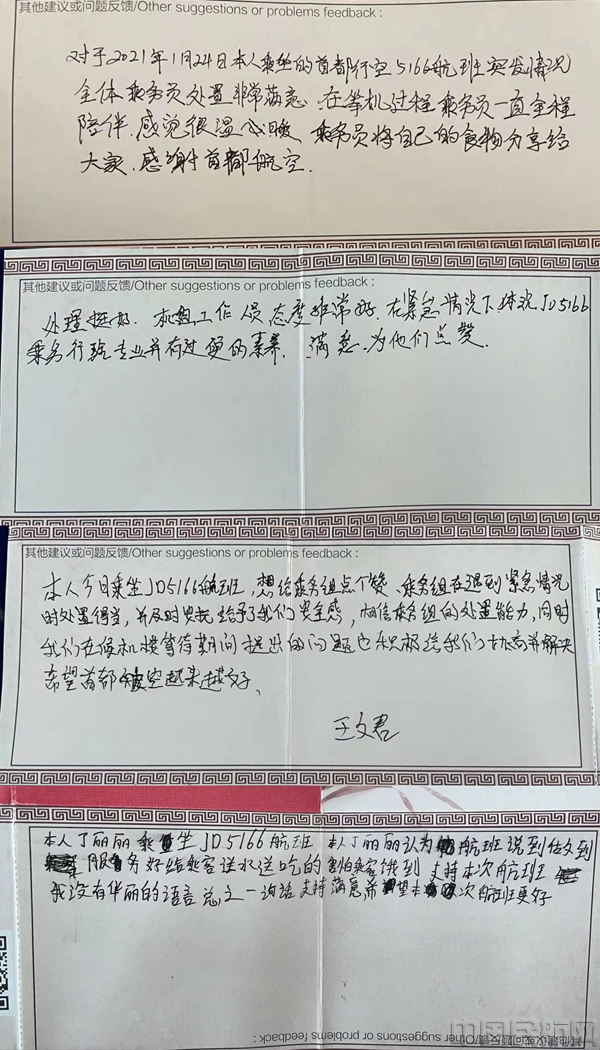 其他建议或问题反馈/Other suggestions or problems feedback :
对于2021年1月24日本人乘坐的首都行空5166航班突发情况
全体乘务员处置非常满意.在等机过程乘务员一直全程
陪伴.感觉很温心暖 乘务员将自己的食物分享给
大家.感谢首都航空.
其他建议或问题反馈/Other suggestions or problems feedback :
处理挺好.机组工作人员态度非常好.在紧急情况下,体现JD5166
乘务行班专业并有过硬的素养.满意.为他们点赞.
其他建议或问题反馈/Other suggestions or problems feedback :
本人今日乘坐JD5166航班,想给乘务组点个赞、乘务组在遇到紧急情况
时处置得当,并及时安抚给予了我们安全感,相信乘务组的处置能力,同时
我们在候机楼等待期间提出的问题也积极给我们协商并解决
希望首都航空越来越好、
王文君
本人丁丽丽乘坐JD5166航班 本人丁丽丽认为航班说到做到
服务好给乘客送水送吃的害怕乘客饿到 支持本次航班
我没有华丽的语言总之一句话支持满意希望本次航班更好
其他建议或问题反馈/Other suggestions or problems feedback :
中国民航网